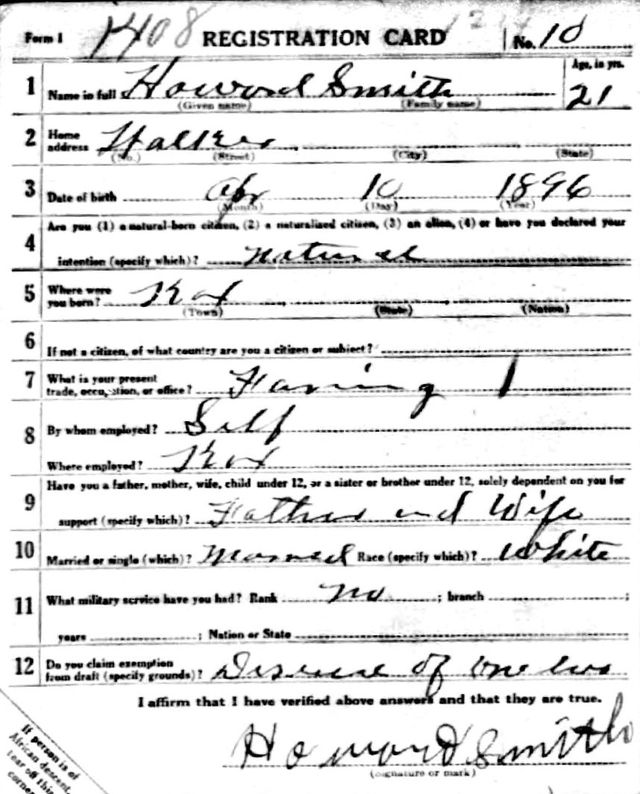 Form 1 1408 REGISTRATION CARD No. 10
1 Name in full Howard Smith Age, in yrs. 21
(Given name) (Family name)
2 Home address Walker
(No.) (Street) (City) (State)
3 Date of birth Apr 10 1896
(Month) (Day) (Year)
4 Are you (1) a natural-born citizen, (2) a naturalized citizen, (3) an alien, (4) or have you declared your
intention (specify which)? Natural
5 Where were you born? Kox
(Town) (State) (Nation)
6 If not a citizen, of what country are you a citizen or subject?
7 What is your present trade, occupation, or office? Faring 1
8 By whom employed? Self
Where employed? Kox
9 Have you a father, mother, wife, child under 12, or a sister or brother under 12, solely dependent on you for
support (specify which)? Father and Wife
10 Married or single (which)? Married Race (specify which)? White
11 What military service have you had? Rank No ; branch ;
years ; Nation or State
12 Do you claim exemption from draft (specify grounds)? Disease of
I affirm that I have verified above answers and that they are true.
Howard Smith
(Signature or mark)
If person is of
African descent,
tear off this
corner